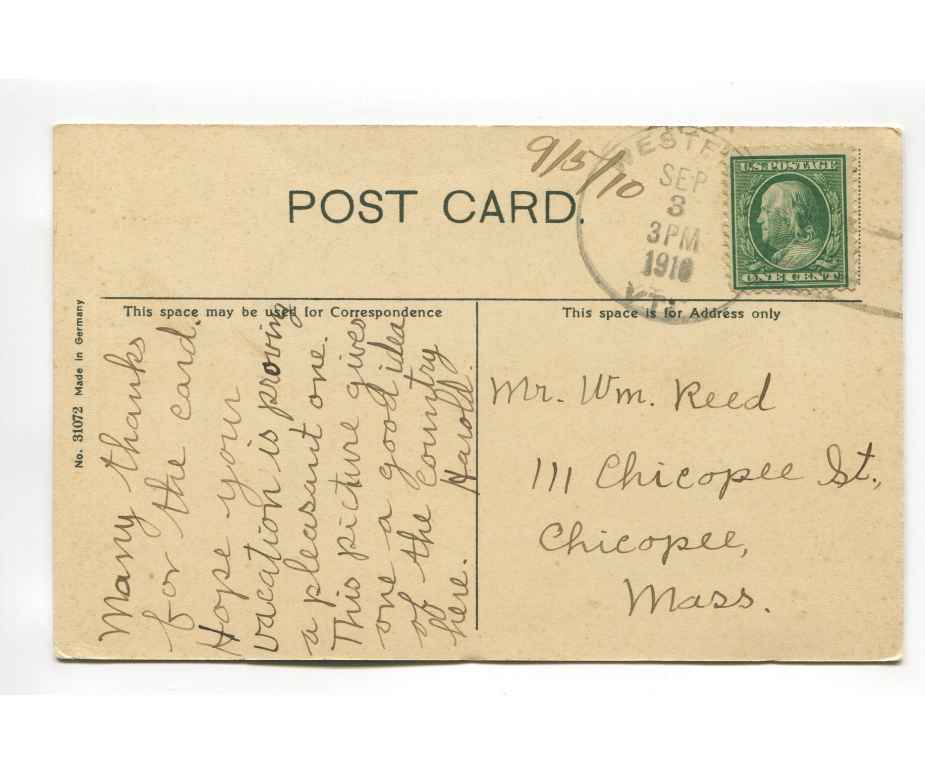 9/5/10
SEP
3
3PM
1910
U.S. POSTAGE
ONE CENT
POST CARD.
This space may be used for Correspondence
This space is for Address only
No. 31072 Made in Germany
Many thanks
for the card.
Hope your
vacation is proving
a pleasant one.
This picture gives
one a good idea
of the Country
here. Harold.
Mr. Wm. Reed
111 Chicopee St.,
Chicopee,
Mass.